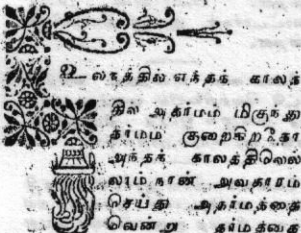 உலகத்தில் எந்தக் காலத்
தில் அதர்மம் மிகுந்து
தர்மம் குறைகிறதோ
அந்தக் காலத்திலெல்
லாம் நான் அவதாரம்
செய்து அதர்மத்தை
வென்று தர்மத்தை